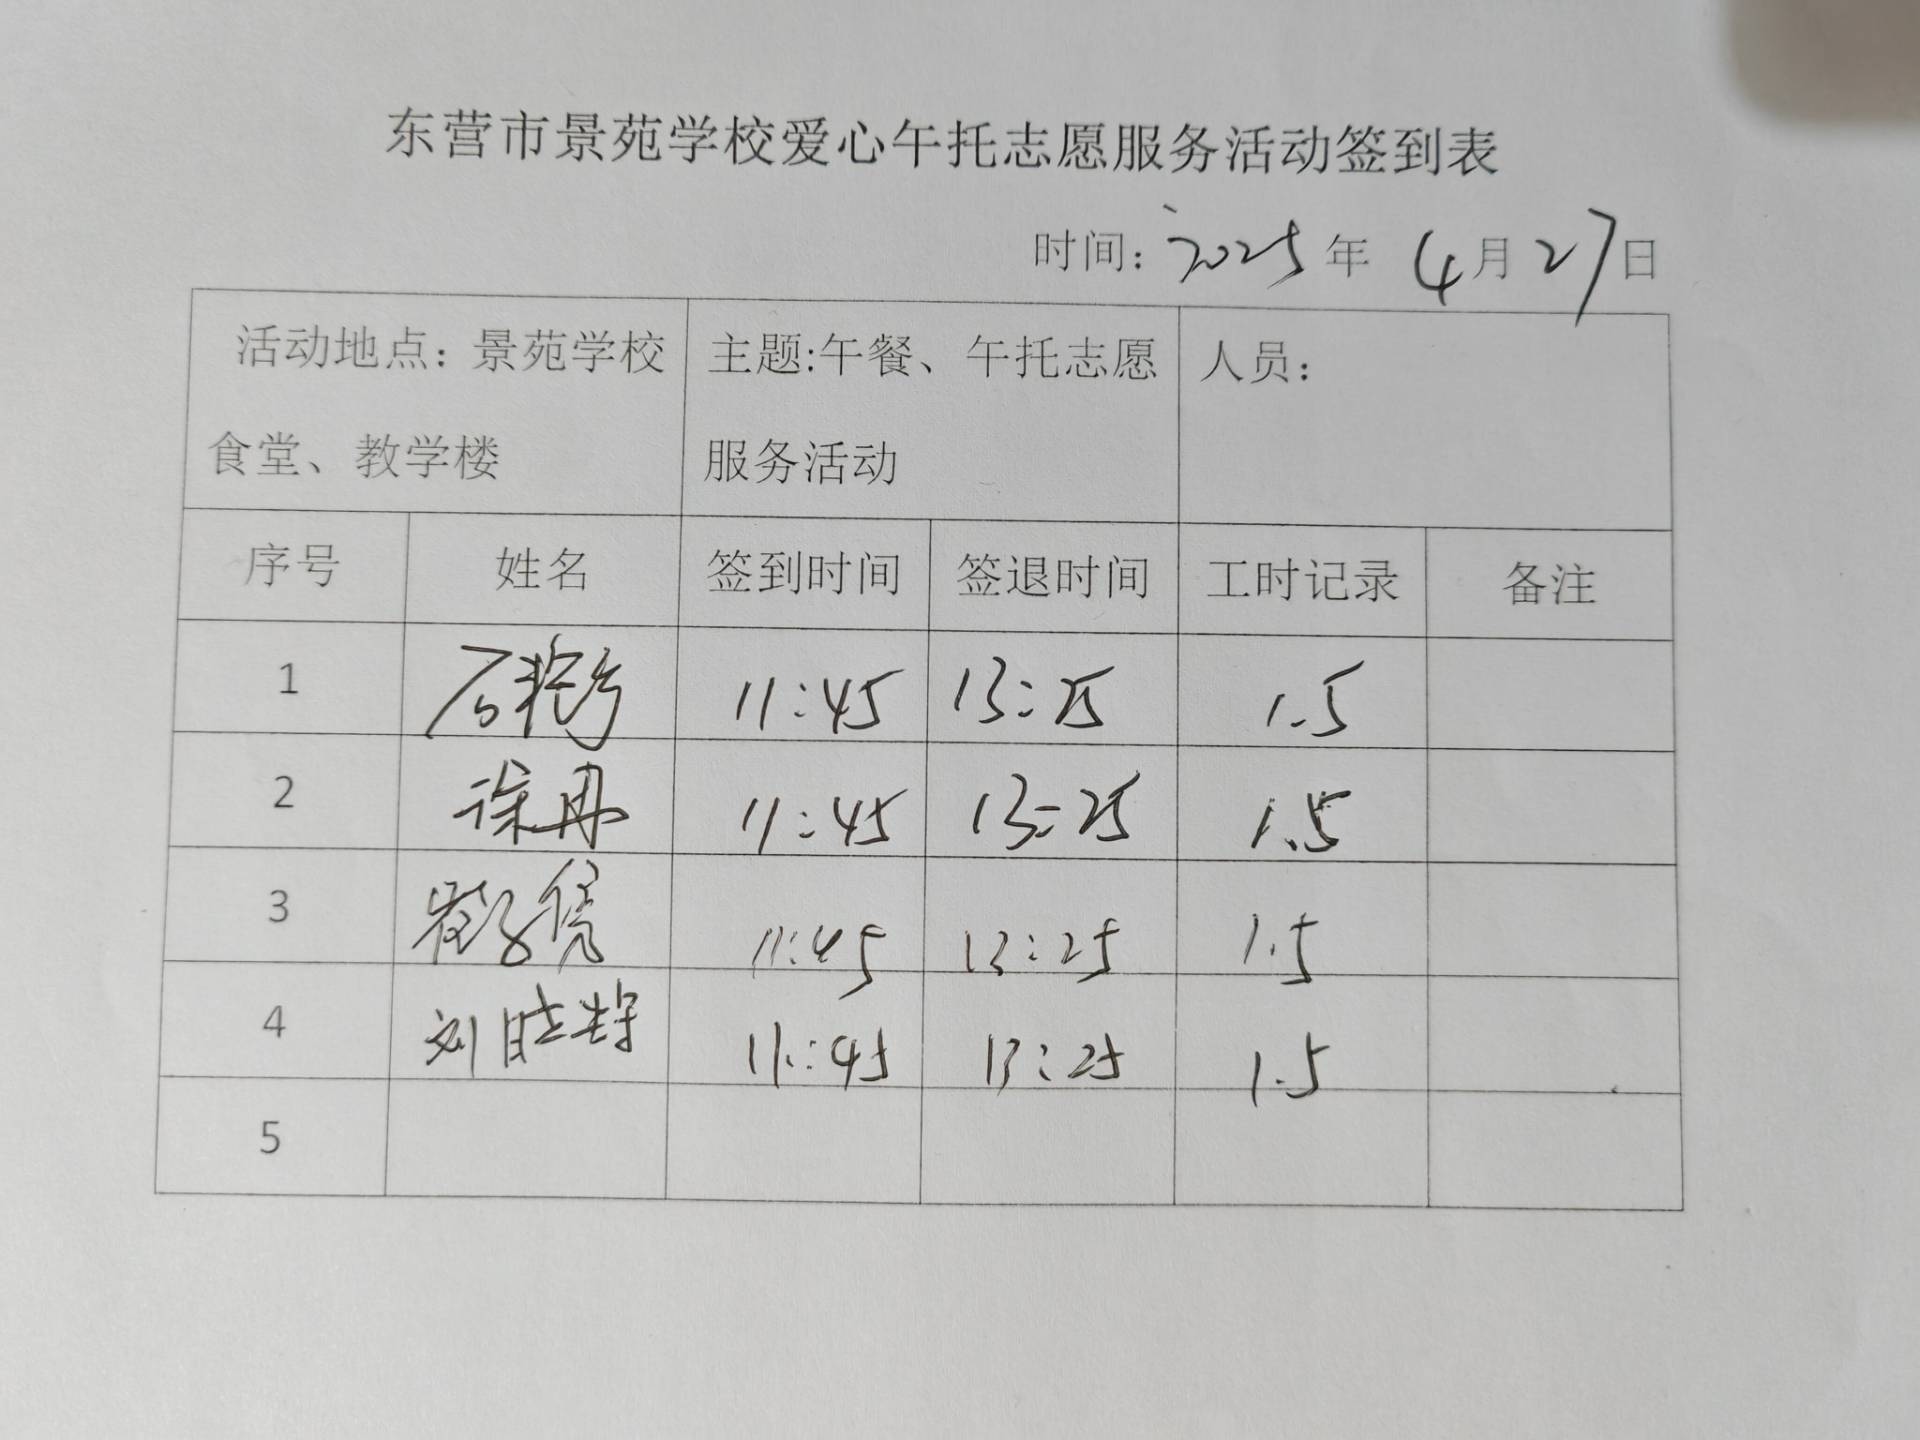 东营市景苑学校爱心午托志愿服务活动签到表
时间：2025年 4月27日
活动地点：景苑学校
食堂、教学楼
主题:午餐、午托志愿
服务活动
人员：
序号 姓名 签到时间 签退时间 工时记录 备注
1 11:45 13:25 1.5
2 徐冉 11:45 13:25 1.5
3 11:45 13:25 1.5
4 刘晓 11:45 13:25 1.5
5